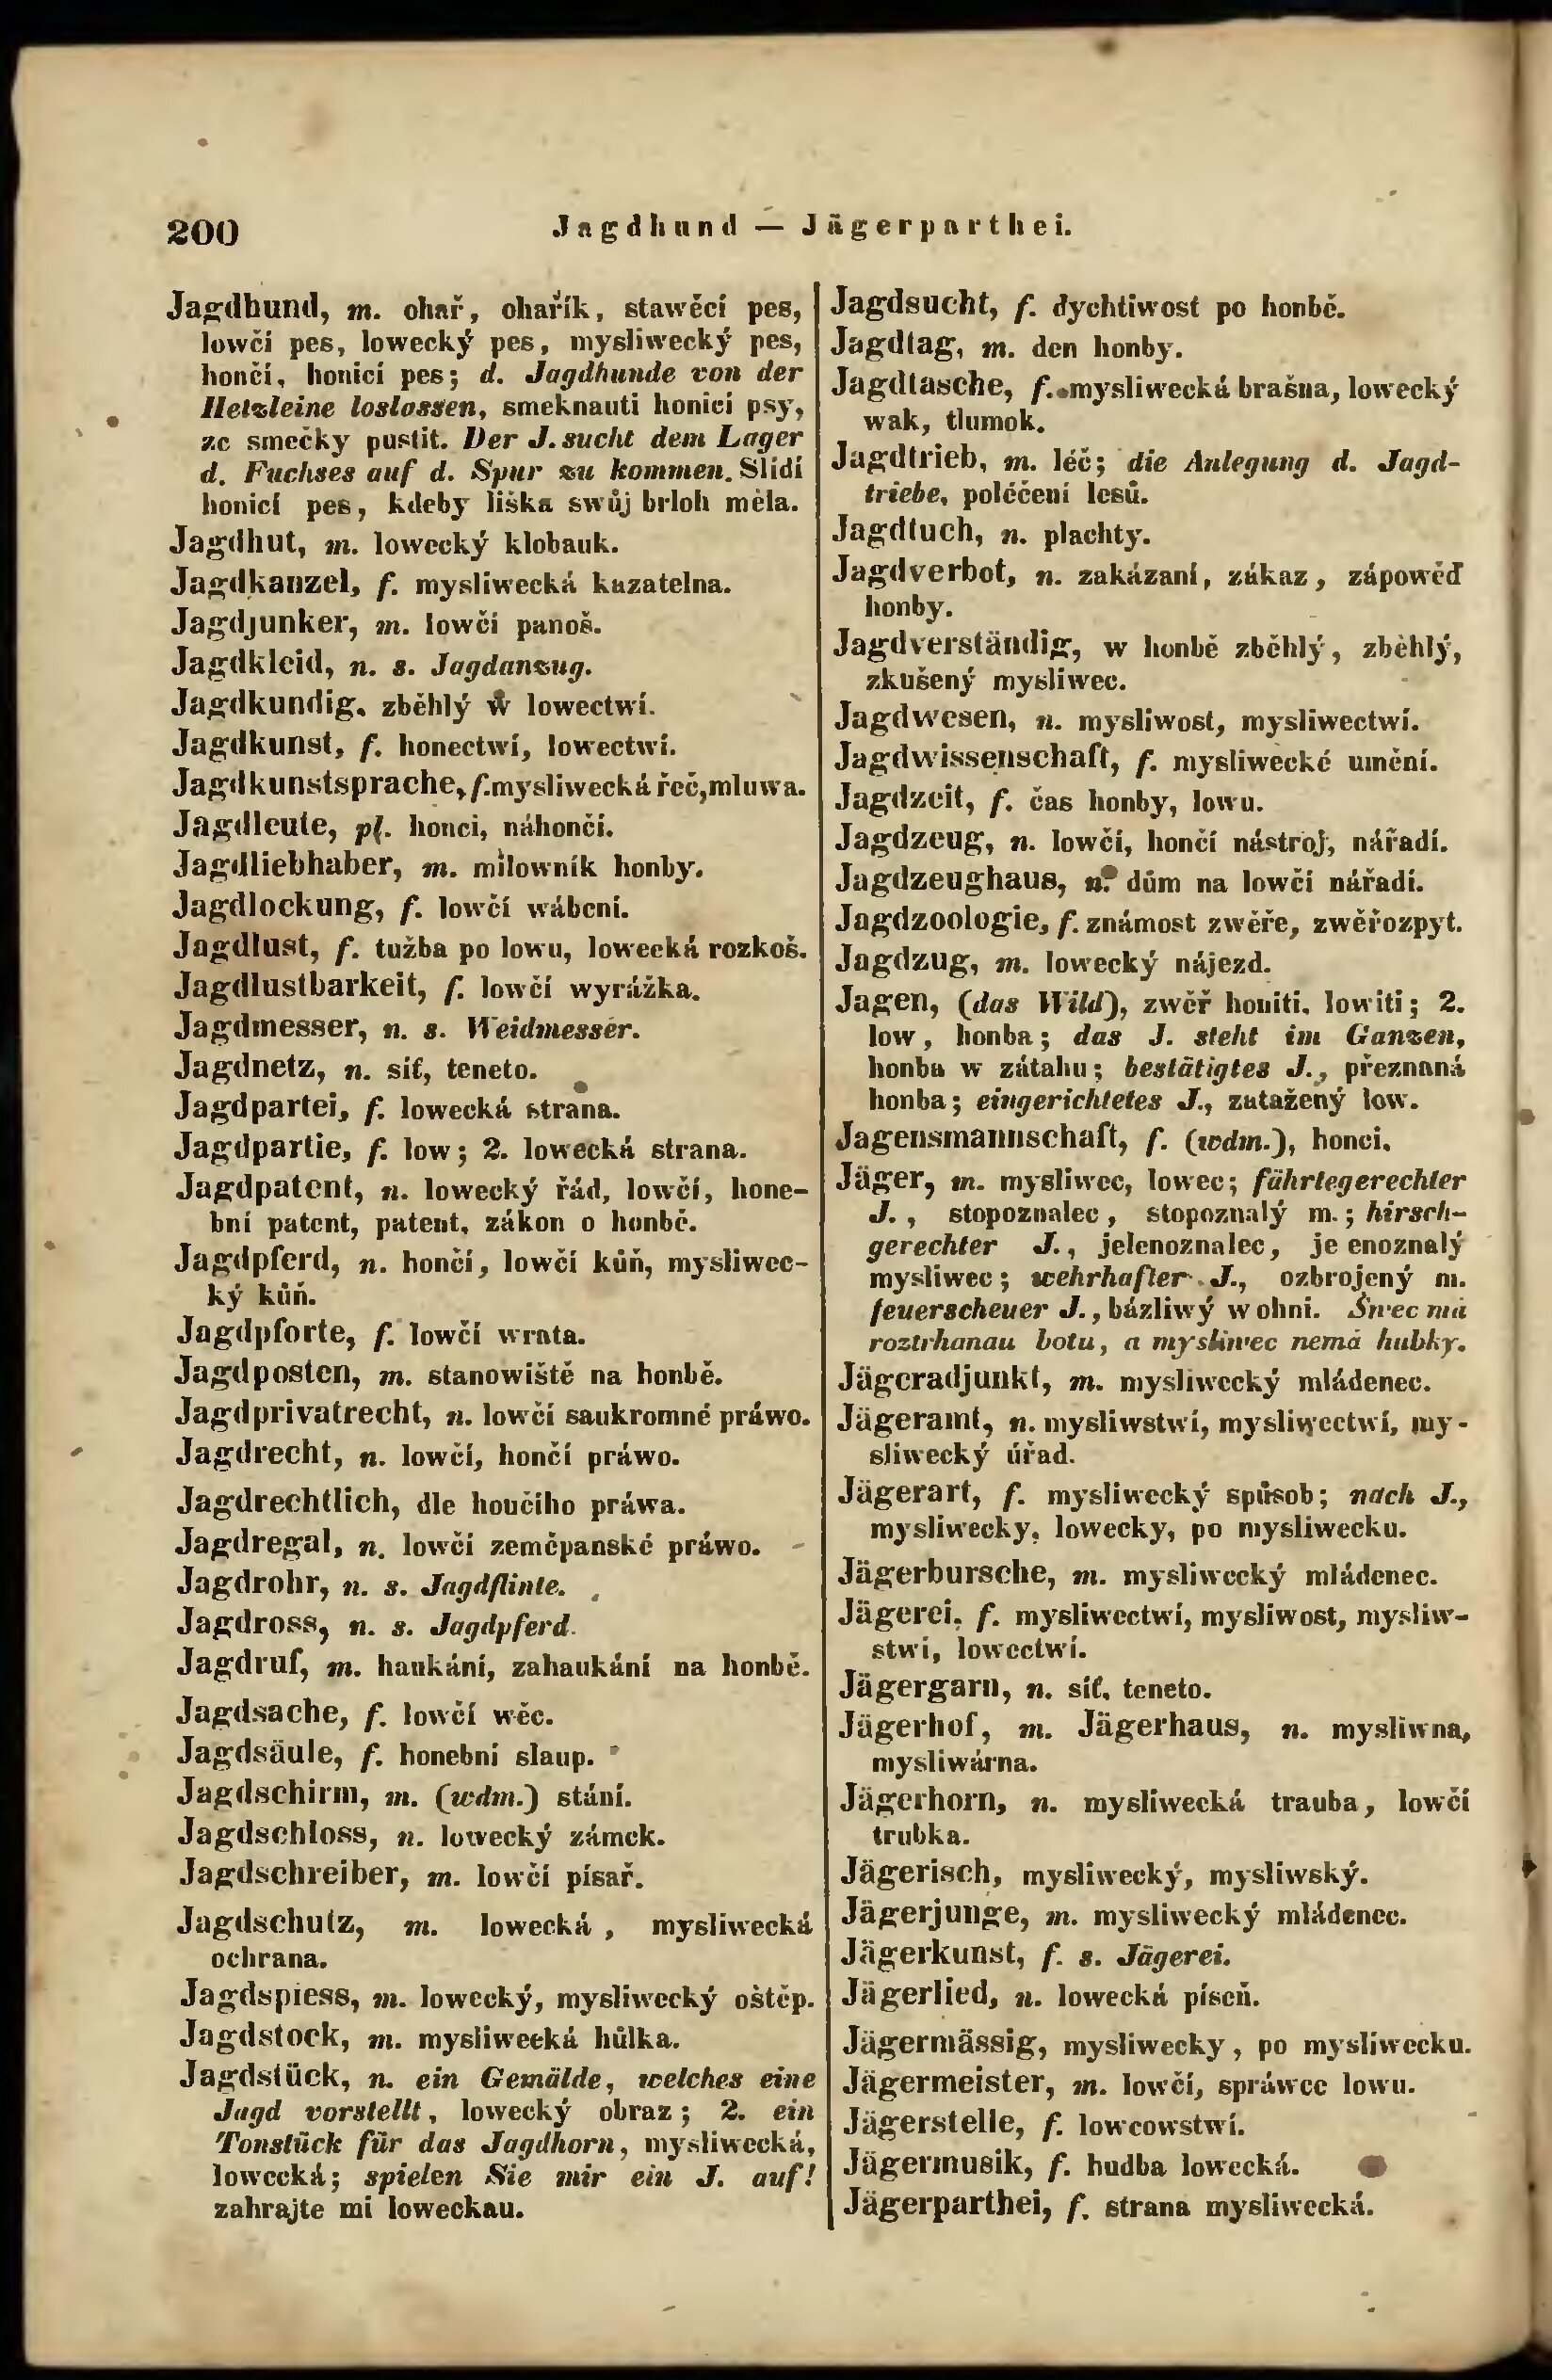 200
Jagdhund — Jägerparthei.
Jagdhund, m. ohař, ohařík, stawěcí pes,
lowčí pes, lowecký pes, mysliwecký pes,
hončí, honicí pes; d. Jagdhunde von der
Hetzleine loslassen, smeknauti honicí psy,
ze smečky pustit. Der J. sucht dem Lager
d. Fuchses auf d. Spur zu kommen. Slídí
honicí pes, kdeby liška swůj brloh měla.
Jagdhut, m. lowecký klobauk.
Jagdkanzel, f. mysliwecká kazatelna.
Jagdjunker, m. lowčí panoš.
Jagdkleid, n. s. Jagdanzug.
Jagdkundig, zběhlý w lowectwí.
Jagdkunst, f. honectwí, lowectwí.
Jagdkunstsprache, f. mysliwecká řeč, mluwa.
Jagdleute, pl. honci, náhončí.
Jagdliebhaber, m. milowník honby.
Jagdlockung, f. lowčí wábení.
Jagdlust, f. tužba po lowu, lowecká rozkoš.
Jagdlustbarkeit, f. lowčí wyrážka.
Jagdmesser, n. s. Weidmesser.
Jagdnetz, n. síť, teneto.
Jagdpartei, f. lowecká strana.
Jagdpartie, f. low; 2. lowecká strana.
Jagdpatent, n. lowecký řád, lowčí, hone-
bní patent, patent, zákon o honbě.
Jagdpferd, n. hončí, lowčí kůň, mysliwec-
ký kůň.
Jagdpforte, f. lowčí wrata.
Jagdposten, m. stanowiště na honbě.
Jagdprivatrecht, n. lowčí saukromné práwo.
Jagdrecht, n. lowčí, hončí práwo.
Jagdrechtlich, dle hončího práwa.
Jagdregal, n. lowčí zeměpanské práwo.
Jagdrohr, n. s. Jagdflinte.
Jagdross, n. s. Jagdpferd.
Jagdruf, m. haukání, zahaukání na honbě.
Jagdsache, f. lowčí wěc.
Jagdsäule, f. honební slaup.
Jagdschirm, m. (wdm.) stání.
Jagdschloss, n. lowecký zámek.
Jagdschreiber, m. lowčí písař.
Jagdschutz, m. lowecká, mysliwecká
ochrana.
Jagdspiess, m. lowecký, mysliwecký oštěp.
Jagdstock, m. mysliwecká hůlka.
Jagdstück, n. ein Gemälde, welches eine
Jagd vorstellt, lowecký obraz; 2. ein
Tonstück für das Jagdhorn, mysliwecká,
lowecká; spielen Sie mir ein J. auf!
zahrajte mi loweckau.
Jagdsucht, f. dychtiwost po honbě.
Jagdtag, m. den honby.
Jagdtasche, f. mysliwecká brašna, lowecký
wak, tlumok.
Jagdtrieb, m. léč; die Anlegung d. Jagd-
triebe, poléčení lesů.
Jagdtuch, n. plachty.
Jagdverbot, n. zakázaní, zákaz, zápowěď
honby.
Jagdverständig, w honbě zběhlý, zběhlý,
zkušený mysliwec.
Jagdwesen, n. mysliwost, mysliwectwí.
Jagdwissenschaft, f. mysliwecké umění.
Jagdzeit, f. čas honby, lowu.
Jagdzeug, n. lowčí, hončí nástroj, nářadí.
Jagdzeughaus, n. dům na lowčí nářadí.
Jagdzoologie, f. známost zwěře, zwěřozpyt.
Jagdzug, m. lowecký nájezd.
Jagen, (das Wild), zwěř honiti, lowiti; 2.
low, honba; das J. steht im Ganzen,
honba w zátahu; bestätigtes J., přeznaná
honba; eingerichtetes J., zatažený low.
Jagensmannschaft, f. (wdm.), honci.
Jäger, m. mysliwec, lowec; fährtegerechter
J., stopoznalec, stopoznalý m.; hirsch-
gerechter J., jelenoznalec, je enoznalý
mysliwec; wehrhafter J., ozbrojený m.
feuerscheuer J., bázliwý w ohni. Šwec má
roztrhanau botu, a mysliwec nemá hubky.
Jägeradjunkt, m. mysliwecký mládenec.
Jägeramt, n. mysliwstwí, mysliwectwí, my-
sliwecký úřad.
Jägerart, f. mysliwecký spůsob; nach J.,
mysliwecky, lowecky, po mysliwecku.
Jägerbursche, m. mysliwecký mládenec.
Jägerei, f. mysliwectwí, mysliwost, mysliw-
stwí, lowectwí.
Jägergarn, n. síť, teneto.
Jägerhof, m. Jägerhaus, n. mysliwna,
mysliwárna.
Jägerhorn, n. mysliwecká trauba, lowčí
trubka.
Jägerisch, mysliwecký, mysliwský.
Jägerjunge, m. mysliwecký mládenec.
Jägerkunst, f. s. Jägerei.
Jägerlied, n. lowecká píseň.
Jägermässig, mysliwecky, po mysliwecku.
Jägermeister, m. lowčí, spráwce lowu.
Jägerstelle, f. lowcowstwí.
Jägermusik, f. hudba lowecká.
Jägerparthei, f. strana mysliwecká.